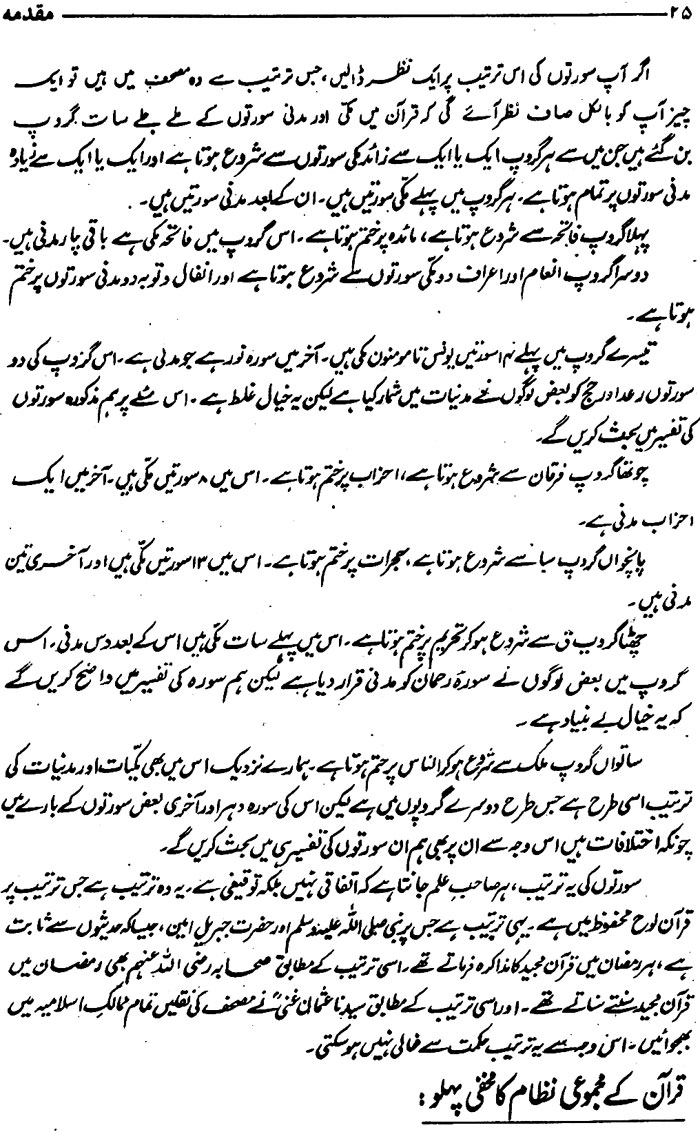 ۲۵ مقدمہ
اگر آپ سورتوں کی اس ترتیب پر ایک نظر ڈالیں، جس ترتیب سے وہ مصحف میں ہیں تو ایک
چیز آپ کو بالکل صاف نظر آئے گی کہ قرآن میں مکی اور مدنی سورتوں کے ملے جلے سات گروپ
بن گئے ہیں جن میں سے ہر گروپ ایک یا ایک سے زائد مکی سورتوں سے شروع ہوتا ہے اور ایک یا ایک سے زیادہ
مدنی سورتوں پر تمام ہوتا ہے۔ ہر گروپ میں پہلے مکی سورتیں ہیں۔ ان کے بعد مدنی سورتیں ہیں۔
پہلا گروپ فاتحہ سے شروع ہوتا ہے، مائدہ پر ختم ہوتا ہے۔ اس گروپ میں فاتحہ مکی ہے باقی چار مدنی ہیں۔
دوسرا گروپ انعام اور اعراف دو مکی سورتوں سے شروع ہوتا ہے اور انفال و توبہ دو مدنی سورتوں پر ختم
ہوتا ہے۔
تیسرے گروپ میں پہلے ۱۴ سورتیں یونس تا مومنون مکی ہیں۔ آخر میں سورہ نور ہے جو مدنی ہے۔ اس گروپ کی دو
سورتوں رعد اور حج کو بعض لوگوں نے مدنیات میں شمار کیا ہے لیکن یہ خیال غلط ہے۔ اس مسئلے پر ہم مذکورہ سورتوں
کی تفسیر میں بحث کریں گے۔
چوتھا گروپ فرقان سے شروع ہوتا ہے، احزاب پر ختم ہوتا ہے۔ اس میں ۸ سورتیں مکی ہیں۔ آخر میں ایک
احزاب مدنی ہے۔
پانچواں گروپ سبا سے شروع ہوتا ہے، حجرات پر ختم ہوتا ہے۔ اس میں ۱۳ سورتیں مکی ہیں اور آخری تین
مدنی ہیں۔
چھٹا گروپ ق سے شروع ہو کر تحریم پر ختم ہوتا ہے۔ اس میں پہلے سات مکی ہیں اس کے بعد دس مدنی۔ اس
گروپ میں بعض لوگوں نے سورۂ رحمان کو مدنی قرار دیا ہے لیکن ہم سورہ کی تفسیر میں واضح کریں گے
کہ یہ خیال بے بنیاد ہے۔
ساتواں گروپ ملک سے شروع ہو کر الناس پر ختم ہوتا ہے۔ ہمارے نزدیک اس میں بھی مکیات اور مدنیات کی
ترتیب اسی طرح ہے جس طرح دوسرے گروپوں میں ہے لیکن اس کی سورہ دہر اور آخری بعض سورتوں کے بارے میں
چونکہ اختلافات ہیں اس وجہ سے ان پر بھی ہم ان سورتوں کی تفسیر ہی میں بحث کریں گے۔
سورتوں کی یہ ترتیب، ہر صاحب علم جانتا ہے کہ اتفاقی نہیں بلکہ توقیفی ہے۔ یہ وہ ترتیب ہے جس ترتیب پر
قرآن لوح محفوظ میں ہے۔ یہی ترتیب ہے جس پر نبی صلی اللہ علیہ وسلم اور حضرت جبریل امین، جیسا کہ حدیثوں سے ثابت
ہے، ہر رمضان میں قرآن مجید کا مذاکرہ فرماتے تھے۔ اسی ترتیب کے مطابق صحابہ رضی اللہ عنہم بھی رمضان میں
قرآن مجید سنتے سناتے تھے۔ اور اسی ترتیب کے مطابق سیدنا عثمان غنیؓ نے مصحف کی نقلیں تمام ممالک اسلامیہ میں
بھجوائیں۔ اس وجہ سے یہ ترتیب حکمت سے خالی نہیں ہو سکتی۔
قرآن کے مجموعی نظام کا مخفی پہلو: